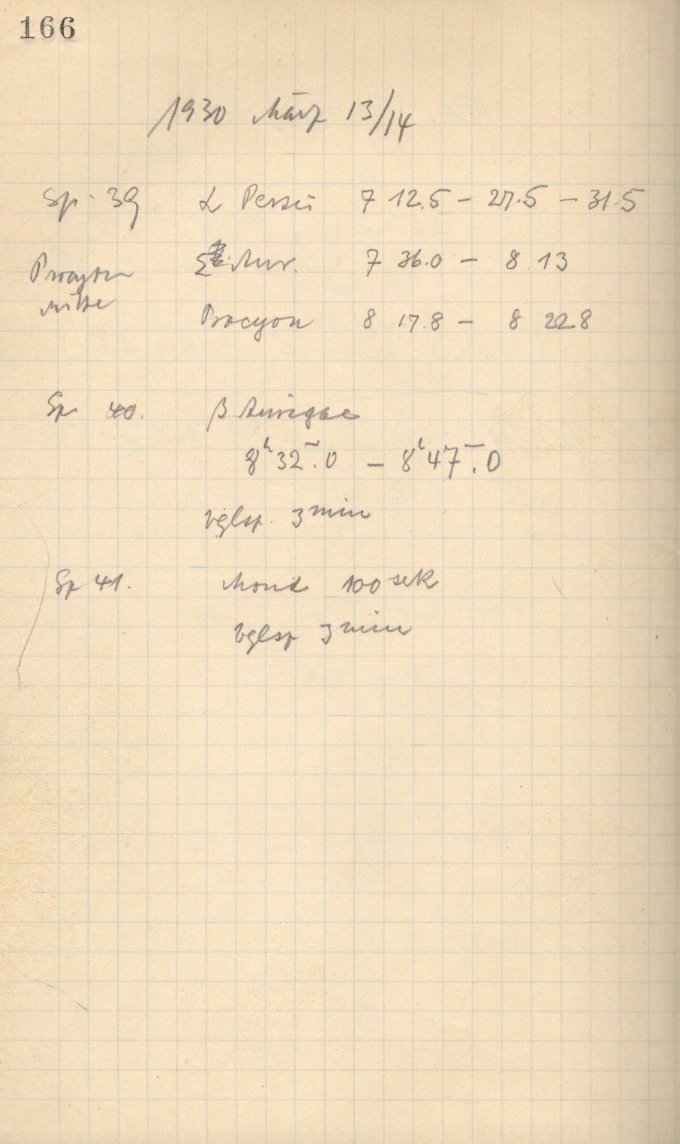 166
1930 März 13/14
Sp. 39 α Persei 7 12.5 – 27.5 – 31.5
Procyon Aur. 7 36.0 – 8 13
mitte
Procyon 8 17.8 – 8 22.8
Sp. 40. β Aurigae
8ʰ32ᵐ.0 – 8ʰ47ᵐ.0
Vglsp. 3 min
Sp 41. Mond 100 sek
Vglsp 3 min